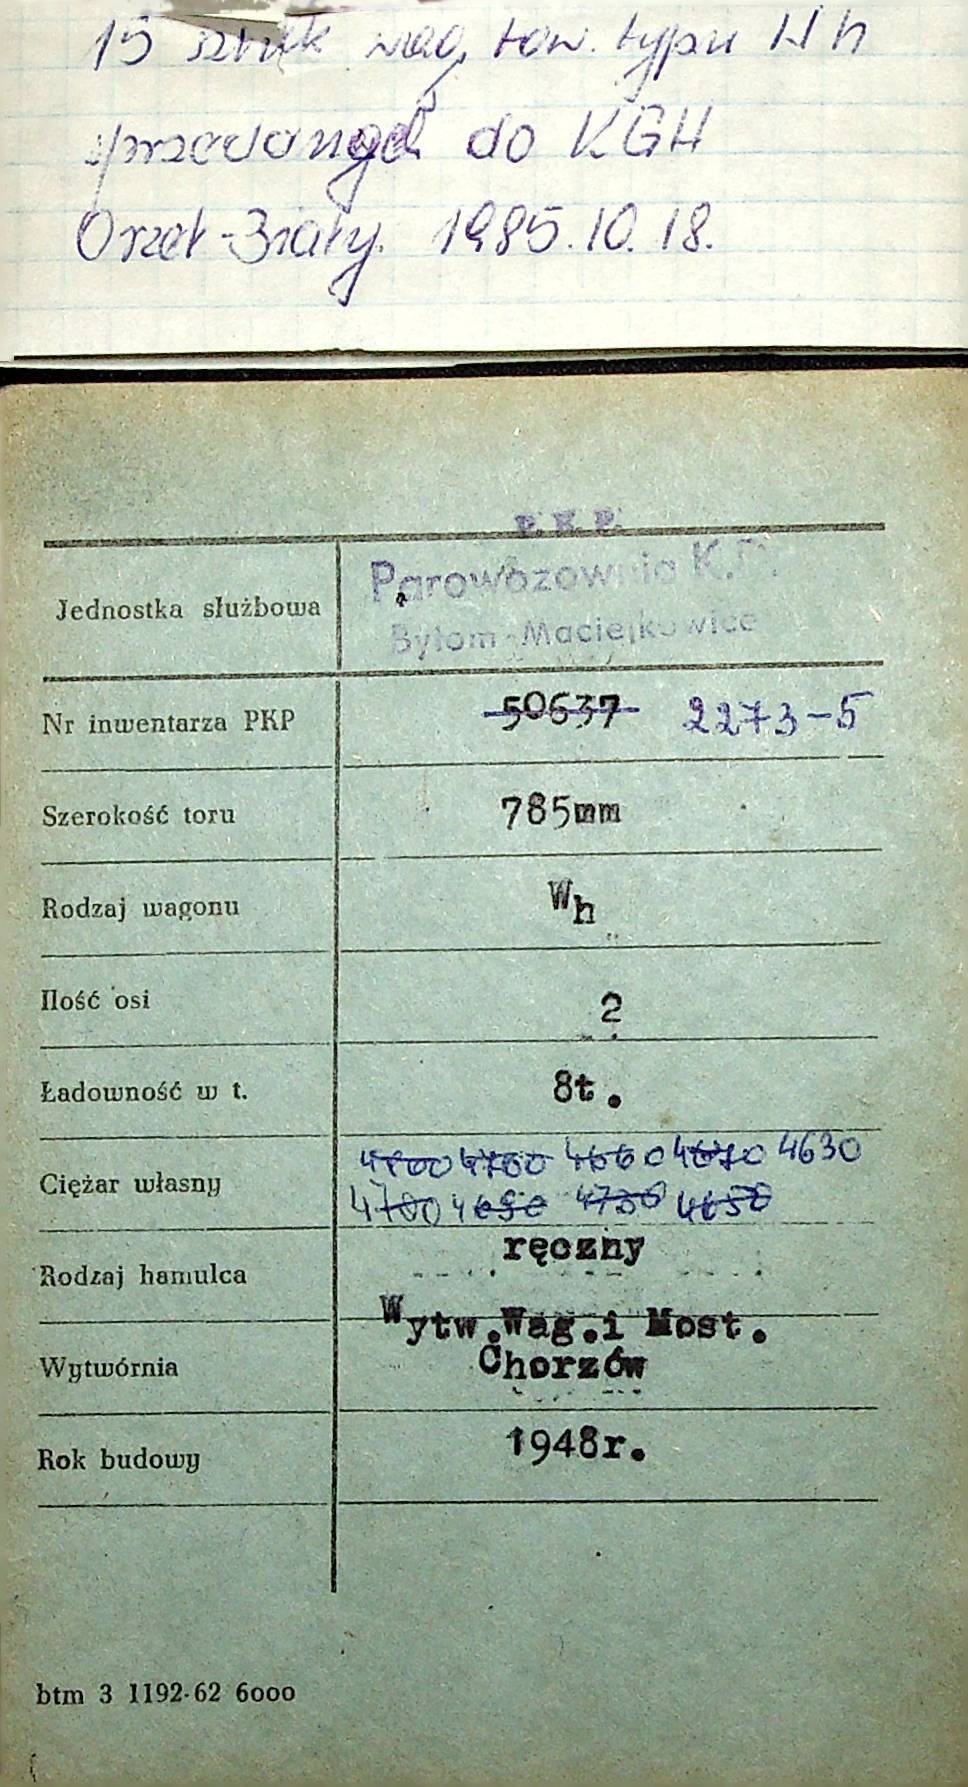 15 sztuk wag. tow. typu Wh
sprzedanych do KGH
Orzeł-Biały. 1985.10.18.
P.K.P.
Jednostka służbowa Parowozownia K.D.
Bytom-Maciejkowice
Nr inwentarza PKP 50637 2273-5
Szerokość toru 785mm
Rodzaj wagonu Wh
Ilość osi 2
Ładowność w t. 8t.
4760 4660 4670 4630
Ciężar własny 4700 4690 4730 4650
Rodzaj hamulca ręczny
Wytw.Wag.i Most.
Wytwórnia Chorzów
Rok budowy 1948r.
btm 3 1192-62 6000